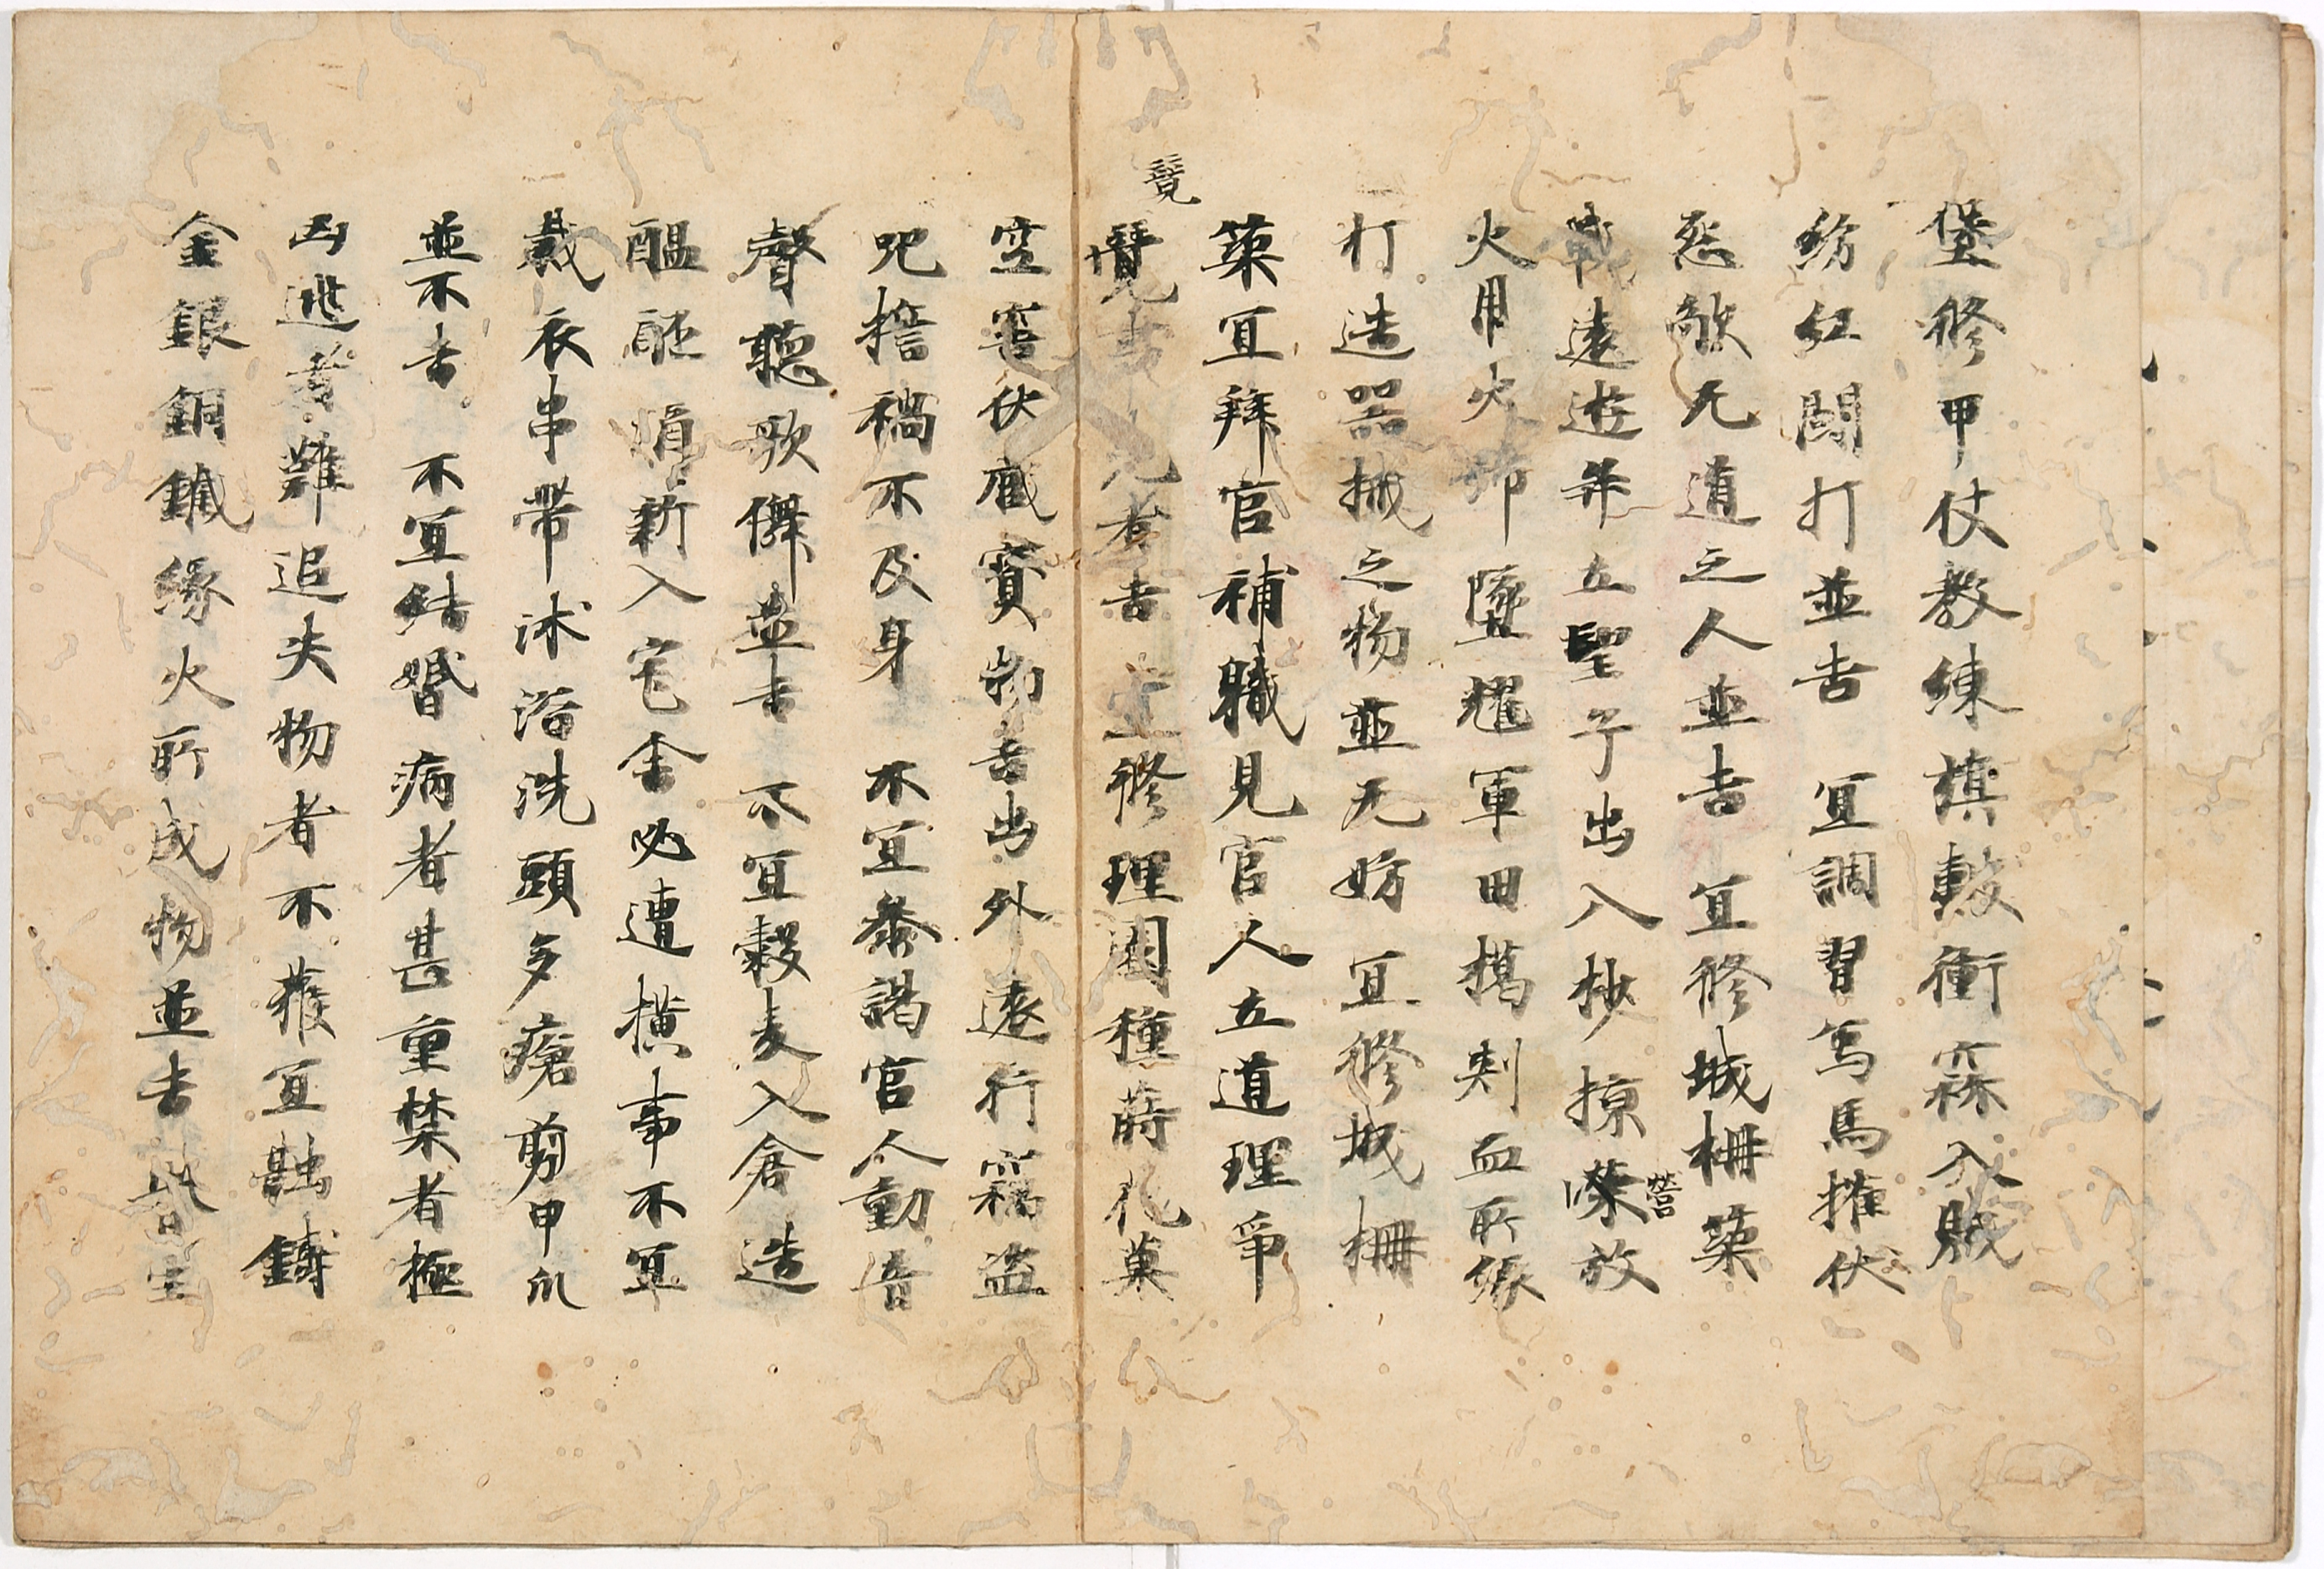 堡修甲仗教練旗鼓衝寐入賊
紛紅鬪打並吉 宜調習鳥馬摧伏
怨敵无道之人並吉 宜修城柵築
戰遠遊并立望子出入抄掠營放
火用火墜耀軍田撝刾血所緣
打造器械之物並无妨 宜修城柵
築宜拜官補軄見官人立道理爭
競
者吉 宜修理園種蒔花菓
空窖伏藏寳物吉出外遠行竊盜
咒揞禍不及身 不宜叅謁官人動音
聲聽歌儛並吉 不宜穀麦入倉造
醖酛娟新入宅舍必遭横事不宜
裁衣串帶沐浴洗頭多瘡剪甲爪
並不吉 不宜結婚病者甚重禁者極
凶逃者難追失物者不獲宜融鑄
金銀銅鐵緣火所成物並吉
營